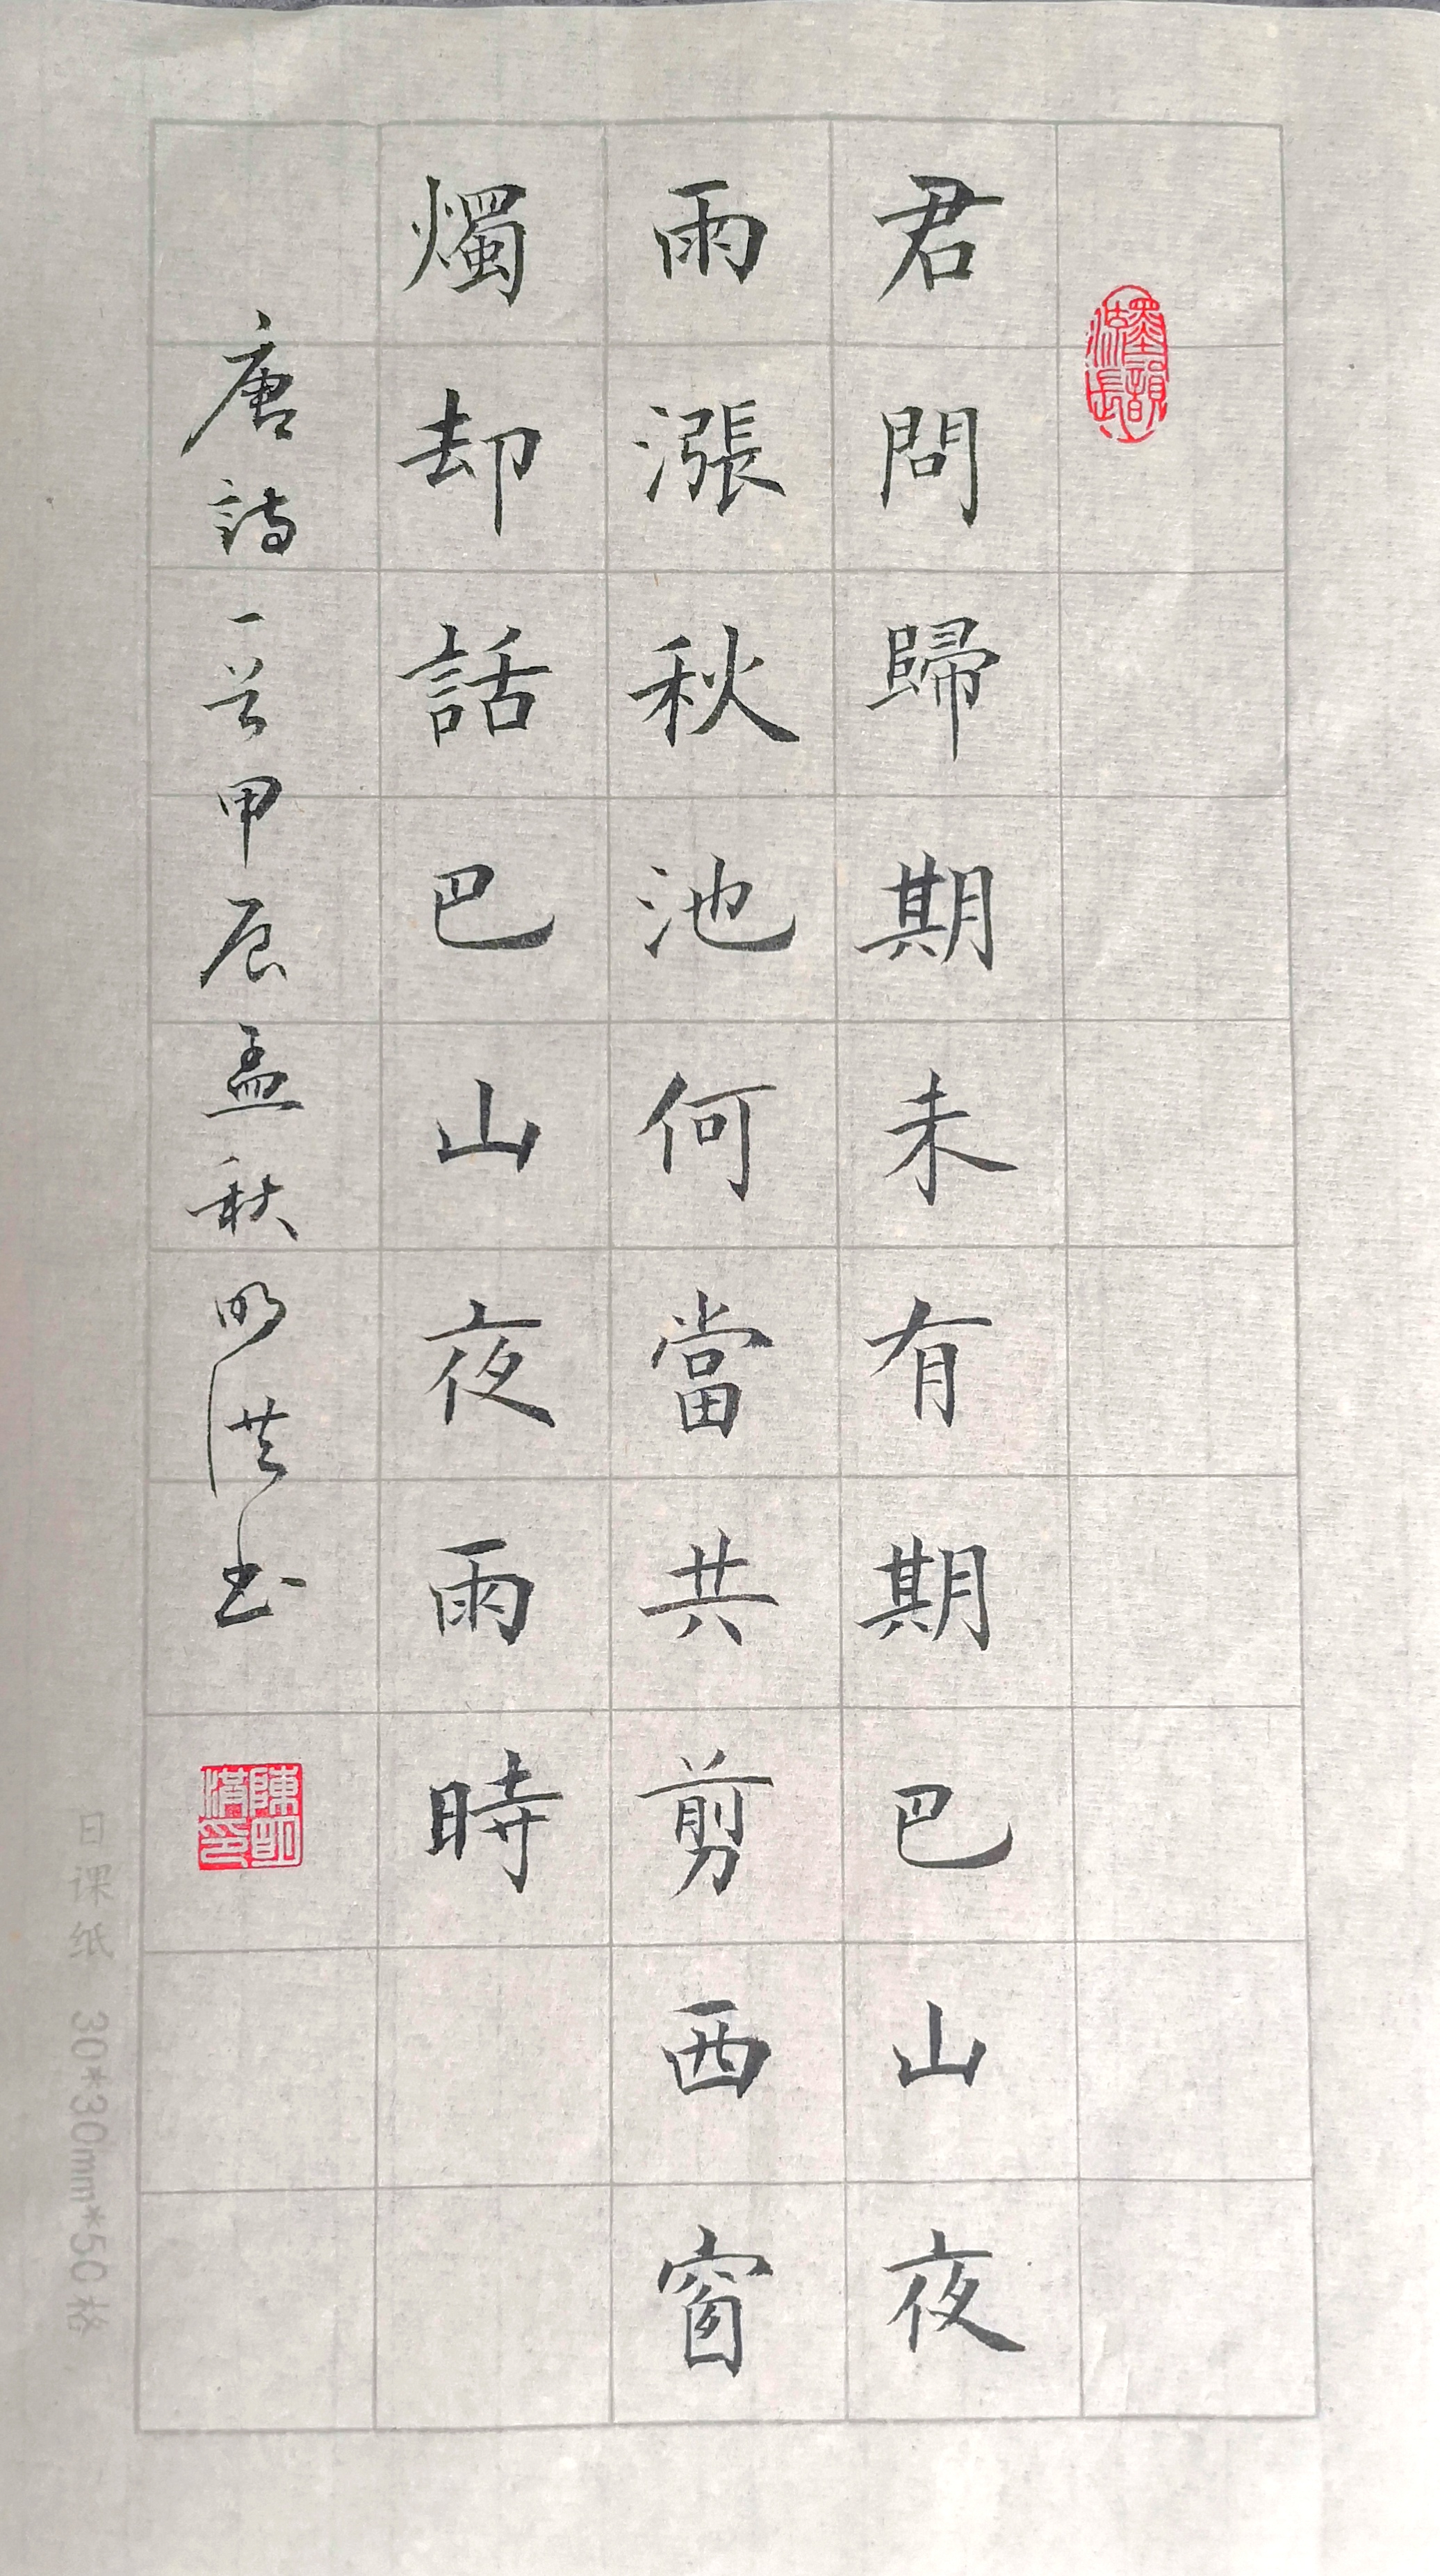 君問歸期未有期巴山夜
雨漲秋池何當共剪西窗
燭却話巴山夜雨時
唐詩一首甲辰孟秋明洪书
墨韻流長
陳明洪印
日课纸 30*30mm*50格